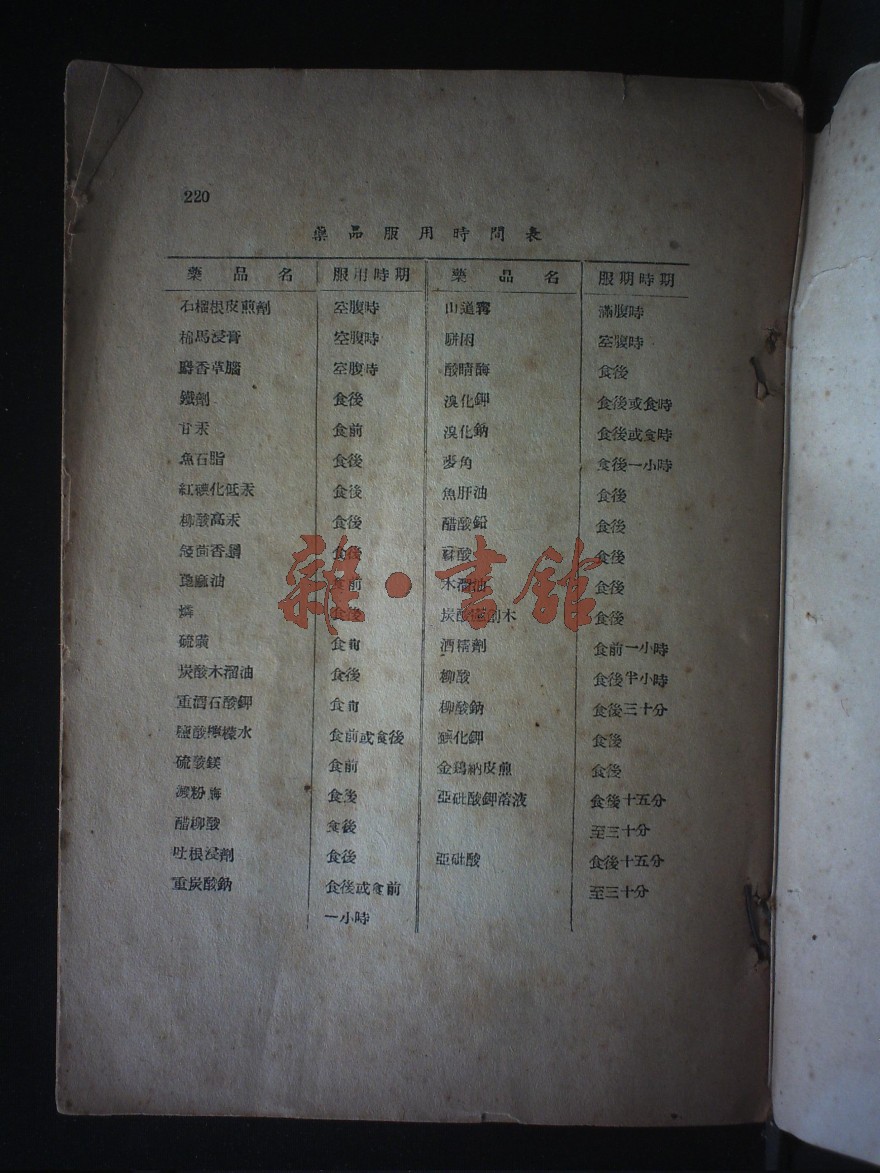 220
藥品服用時間表
藥品名 服用時期 藥品名 服期時期
石榴根皮煎劑 空腹時 山道霄 滿腹時
棉馬浸膏 空腹時 餅困 空腹時
麝香草腦 空腹時 酸晴酶 食後
鐵劑 食後 溴化鉀 食後或食時
甘汞 食前 溴化鈉 食後或食時
魚石脂 食後 麥角 食後一小時
紅碘化低汞 食後 魚肝油 食後
柳酸高汞 食後 醋酸鉛 食後
茴香 食後 酸 食後
蓖麻油 食前 木溜油 食後
燐 食後 炭酸創木 食後
硫磺 食前 酒精劑 食前一小時
炭酸木溜油 食後 柳酸 食後半小時
重酒石酸鉀 食前 柳酸鈉 食後三十分
鹽酸檸檬水 食前或食後 碘化鉀 食後
硫酸鎂 食前 金鷄納皮煎 食後
澱粉酶 食後 亞砒酸鉀溶液 食後十五分
醋柳酸 食後 至三十分
吐根浸劑 食後 亞砒酸 食後十五分
重炭酸鈉 食後或食前 至三十分
一小時
雜·書館